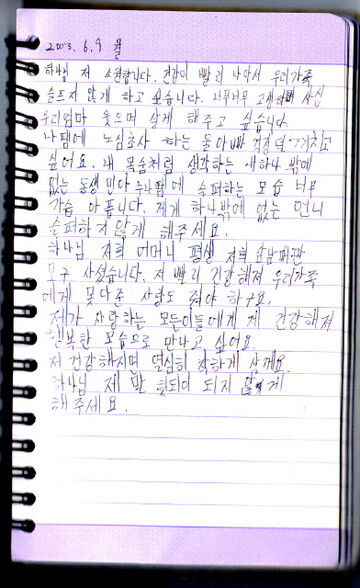 2003. 6. 9 월
하나님 저 소원합니다. 건강이 빨리 나아서 우리가족
슬프지 않게 하고 싶습니다. 너무너무 고생하며 사신
우리엄마 웃으며 살게 해주고 싶습니다.
나땜에 노심초사 하는 울아빠 걱정 덜 끼치고
싶어요. 내 목숨처럼 생각하는 내 하나 밖에
없는 동생 미아 누나땜에 슬퍼하는 모습 너무
가슴 아픕니다. 제게 하나밖에 없는 언니
슬퍼하지않게 해주세요.
하나님 저희 어머니 평생 저희 남매만
보구 사셨습니다. 저 빨리 건강해져 우리가족
에게 못다준 사랑도 줘야 하구요.
제가 사랑하는 모든이들에게 제 건강해져
행복한 모습으로 만나고 싶어요.
저 건강해지며 열심히 착하게 살께요.
하나님 제 말 헛되이 되지 않게
해주세요.